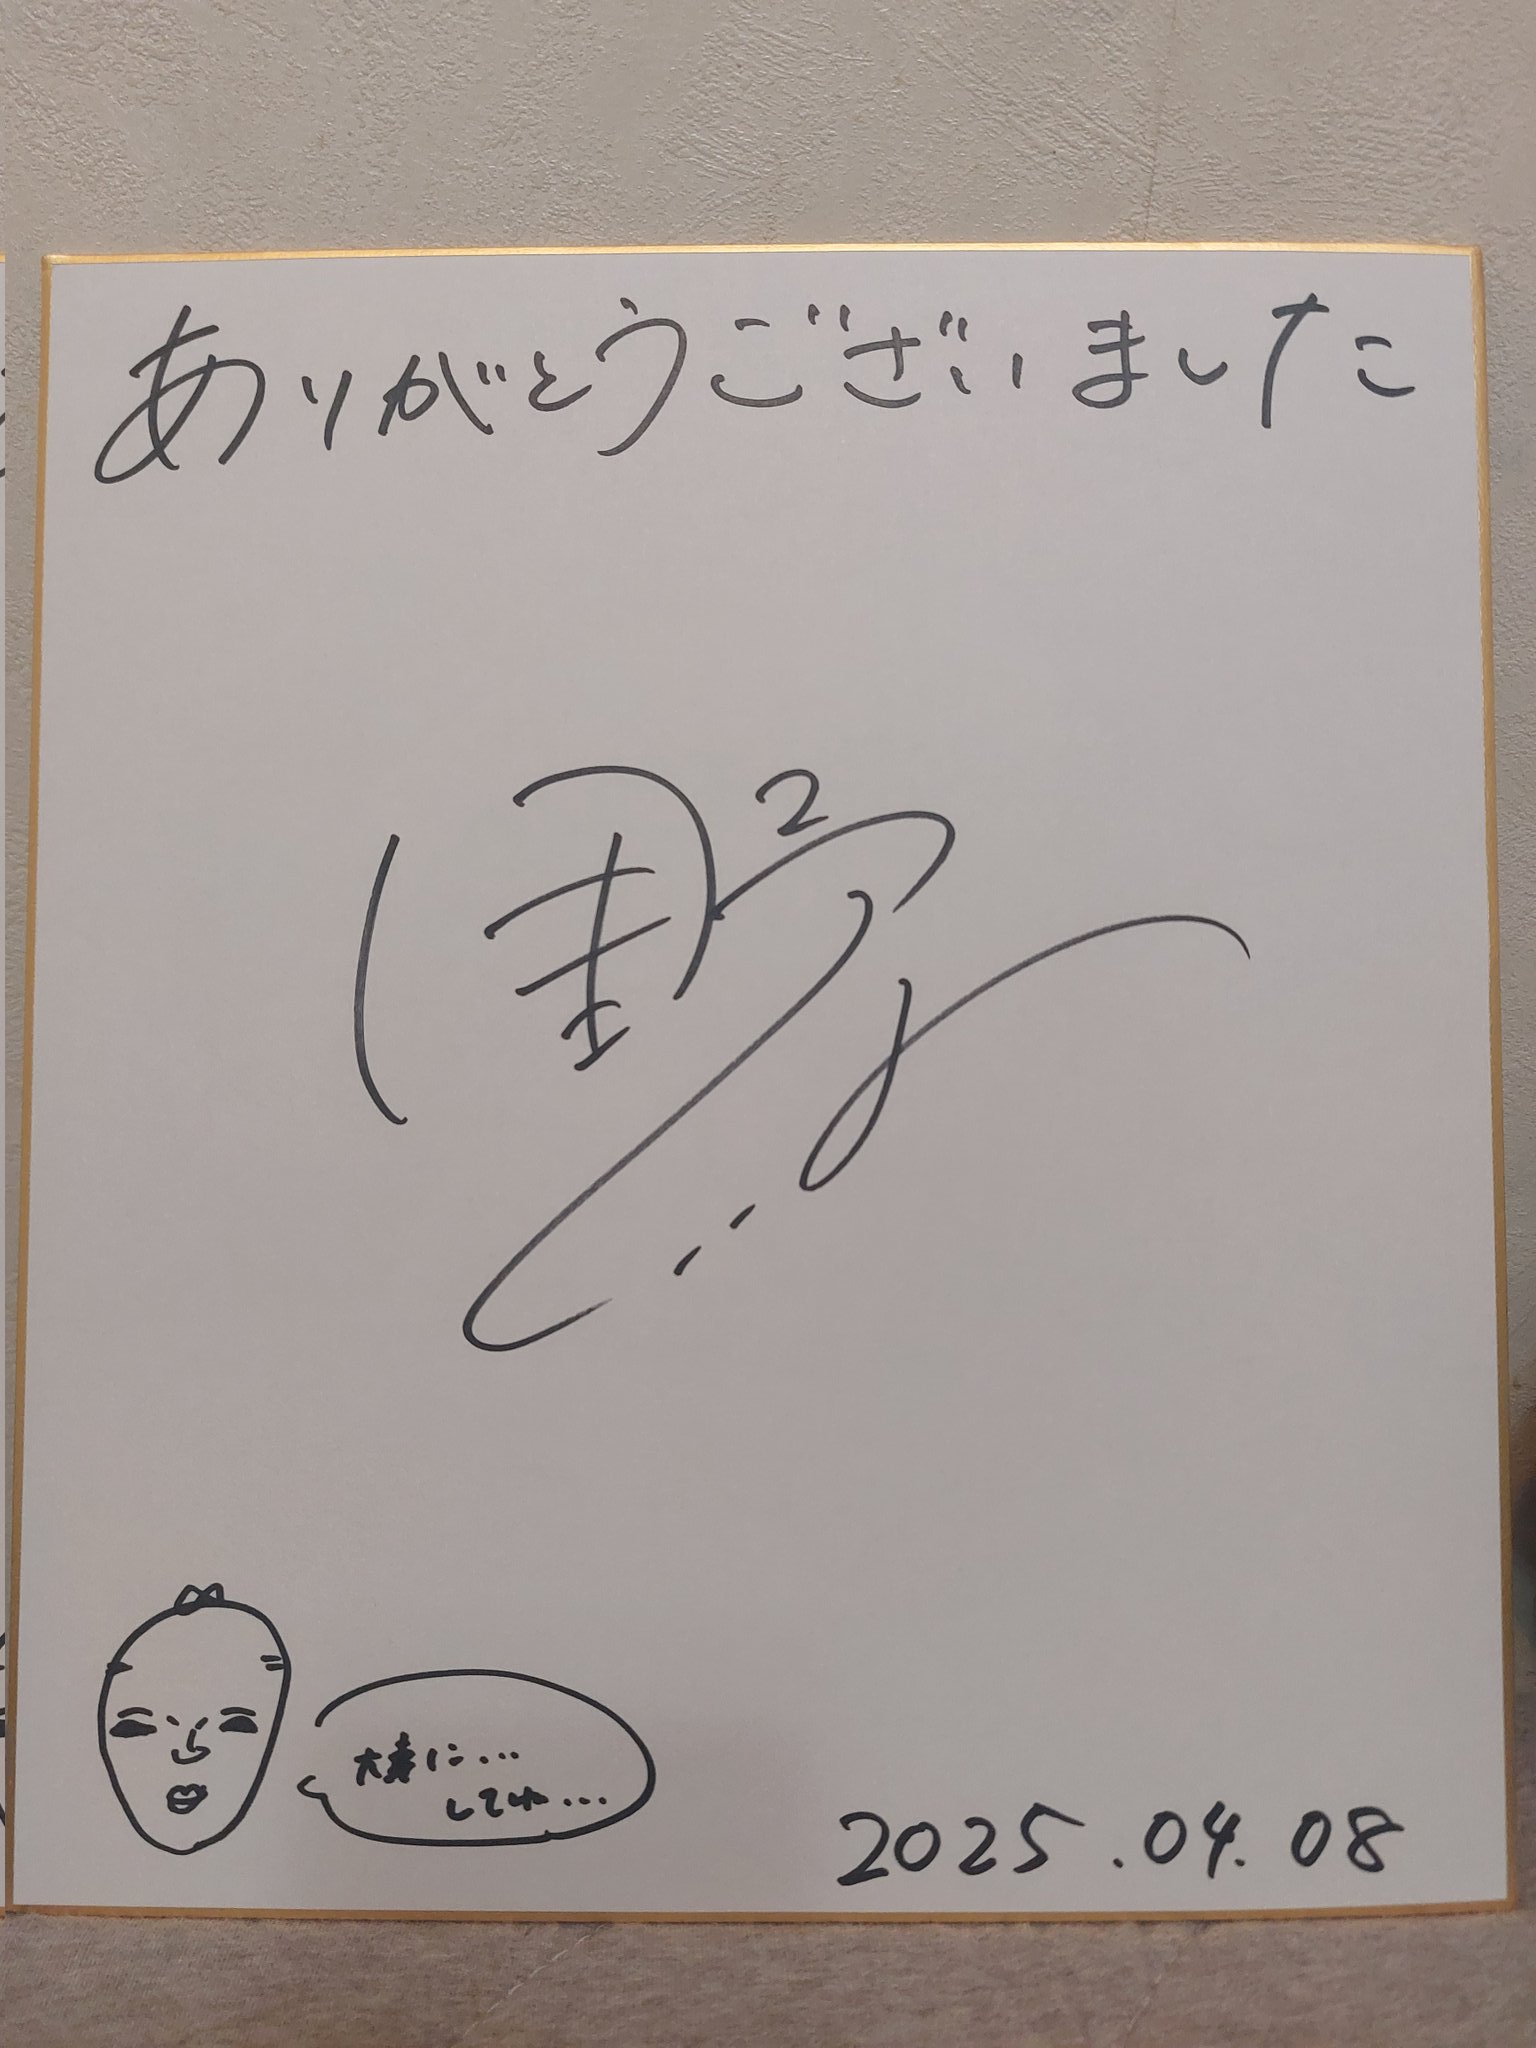 ありがとうございました
大事に...
してね...
2025.04.08